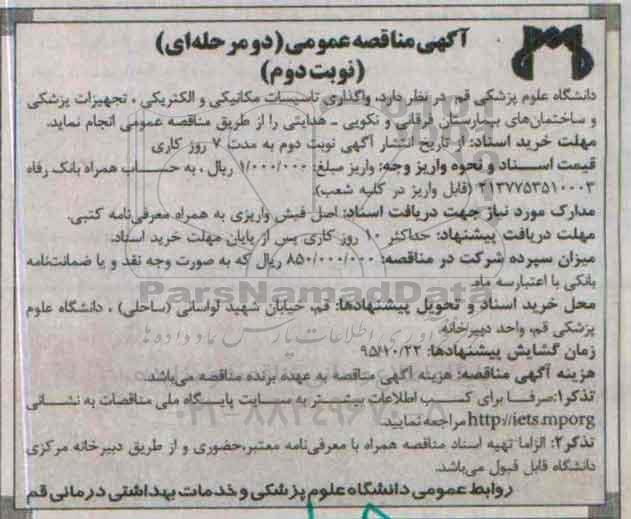 آگهی مناقصه عمومی (دو مرحله‌ای)
(نوبت دوم)
دانشگاه علوم پزشکی قم در نظر دارد، واگذاری تاسیسات مکانیکی و الکتریکی، تجهیزات پزشکی
و ساختمان‌های بیمارستان فرقانی و نکویی - هدایتی را از طریق مناقصه عمومی انجام نماید.
مهلت خرید اسناد: از تاریخ انتشار آگهی نوبت دوم به مدت ۷ روز کاری
قیمت اسناد و نحوه واریز وجه: واریز مبلغ: ۱/۰۰۰/۰۰۰ ریال، به حساب همراه بانک رفاه
۲۱۳۷۷۵۳۵۱۰۰۰۳ (قابل واریز در کلیه شعب).
مدارک مورد نیاز جهت دریافت اسناد: اصل فیش واریزی به همراه معرفی‌نامه کتبی.
مهلت دریافت پیشنهاد: حداکثر ۱۰ روز کاری پس از پایان مهلت خرید اسناد.
میزان سپرده شرکت در مناقصه: ۸۵۰/۰۰۰/۰۰۰ ریال که به صورت وجه نقد و یا ضمانت‌نامه
بانکی با اعتبار سه ماه.
محل خرید اسناد و تحویل پیشنهادها: قم، خیابان شهید لواسانی (ساحلی)، دانشگاه علوم
پزشکی قم، واحد دبیرخانه.
زمان گشایش پیشنهادها: ۹۵/۱۰/۲۲
هزینه آگهی مناقصه: هزینه آگهی مناقصه به عهده برنده مناقصه می‌باشد.
تذکر۱: صرفا برای کسب اطلاعات بیشتر به سایت پایگاه ملی مناقصات به نشانی
http://iets.mporg مراجعه نمایید.
تذکر۲: الزاما تهیه اسناد مناقصه همراه با معرفی‌نامه معتبر، حضوری و از طریق دبیرخانه مرکزی
دانشگاه قابل قبول می‌باشد.
روابط عمومی دانشگاه علوم پزشکی و خدمات بهداشتی درمانی قم
ParsNamadData